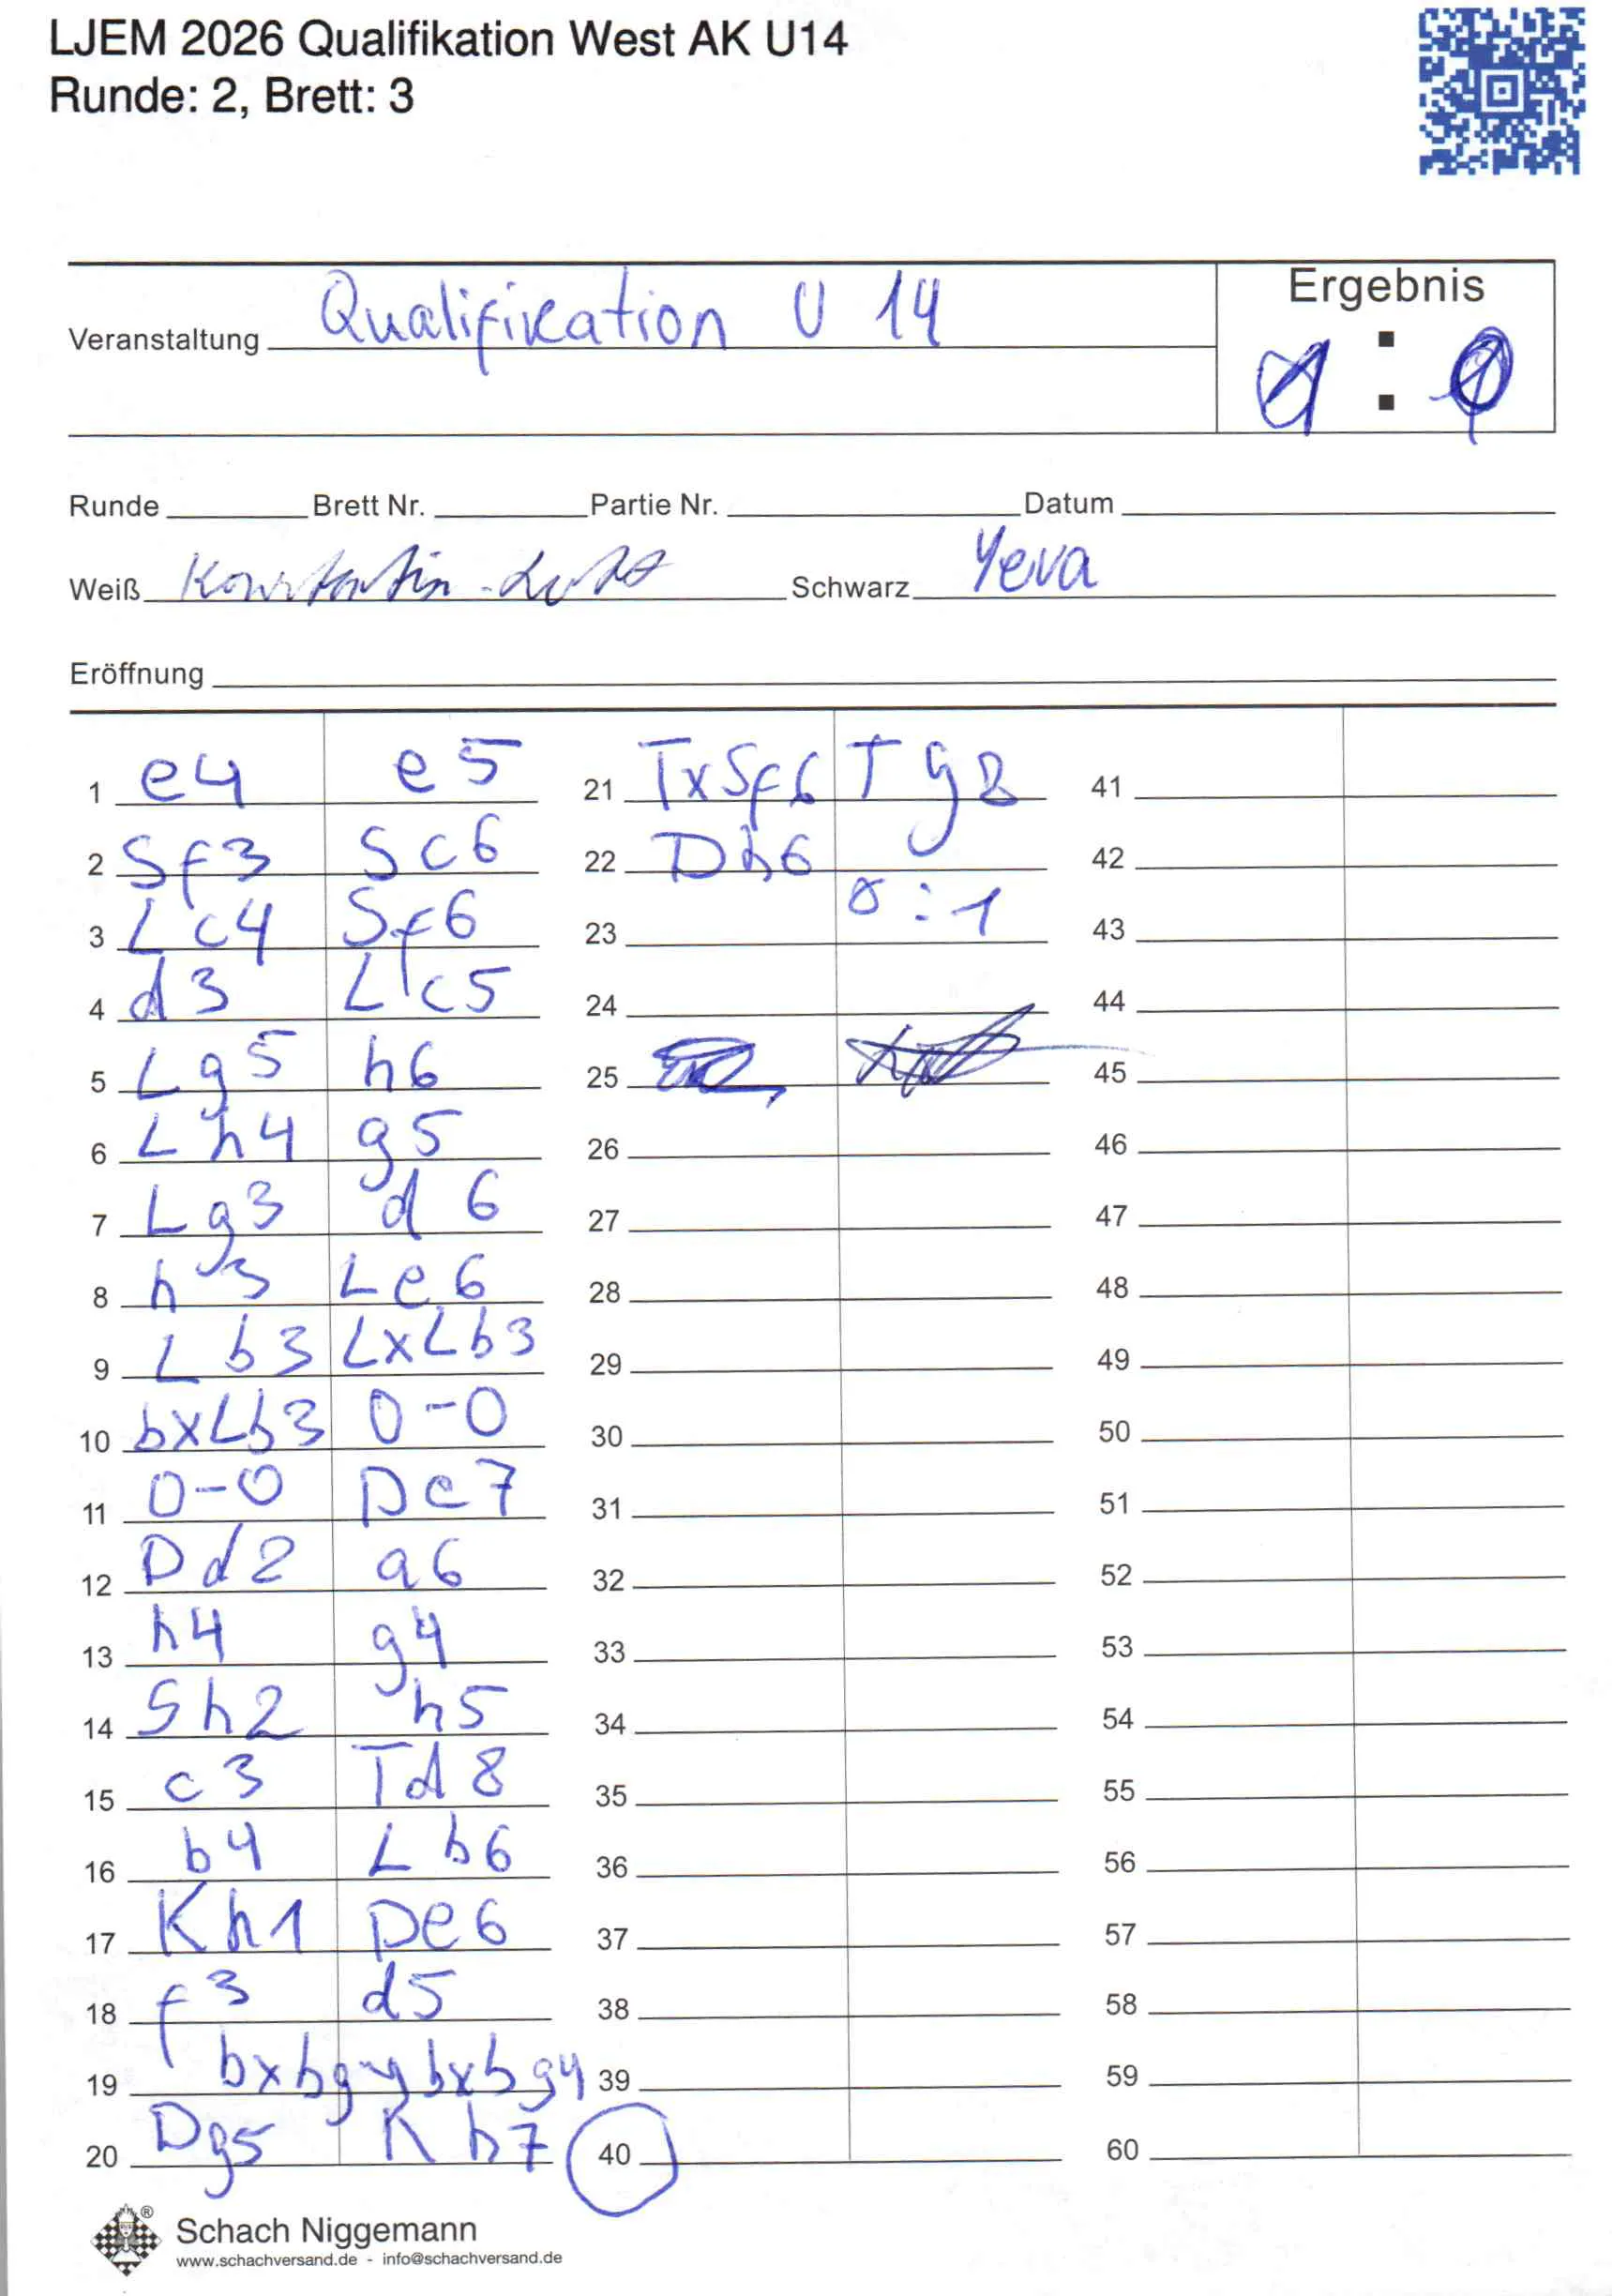 LJEM 2026 Qualifikation West AK U14
Runde: 2, Brett: 3
Veranstaltung Qualifikation U 14
Ergebnis
:
Runde Brett Nr. Partie Nr. Datum
Weiß Konstantin Schwarz Yeva
Eröffnung
1 e4 e5
2 Sf3 Sc6
3 Lc4 Sf6
4 d3 Lc5
5 Lg5 h6
6 Lh4 g5
7 Lg3 d6
8 h3 Le6
9 Lb3 LxLb3
10 bxLb3 0-0
11 0-0 De7
12 Dd2 a6
13 h4 g4
14 Sh2 h5
15 c3 Td8
16 b4 Lb6
17 Kh1 De6
18 f3 d5
19 bxbg4 bxbg4
20 Dg5 Kh7
21 TxSf6 Tg8
22 Dh6
23 0:1
24
25
26
27
28
29
30
31
32
33
34
35
36
37
38
39
40
41
42
43
44
45
46
47
48
49
50
51
52
53
54
55
56
57
58
59
60
Schach Niggemann
www.schachversand.de - info@schachversand.de